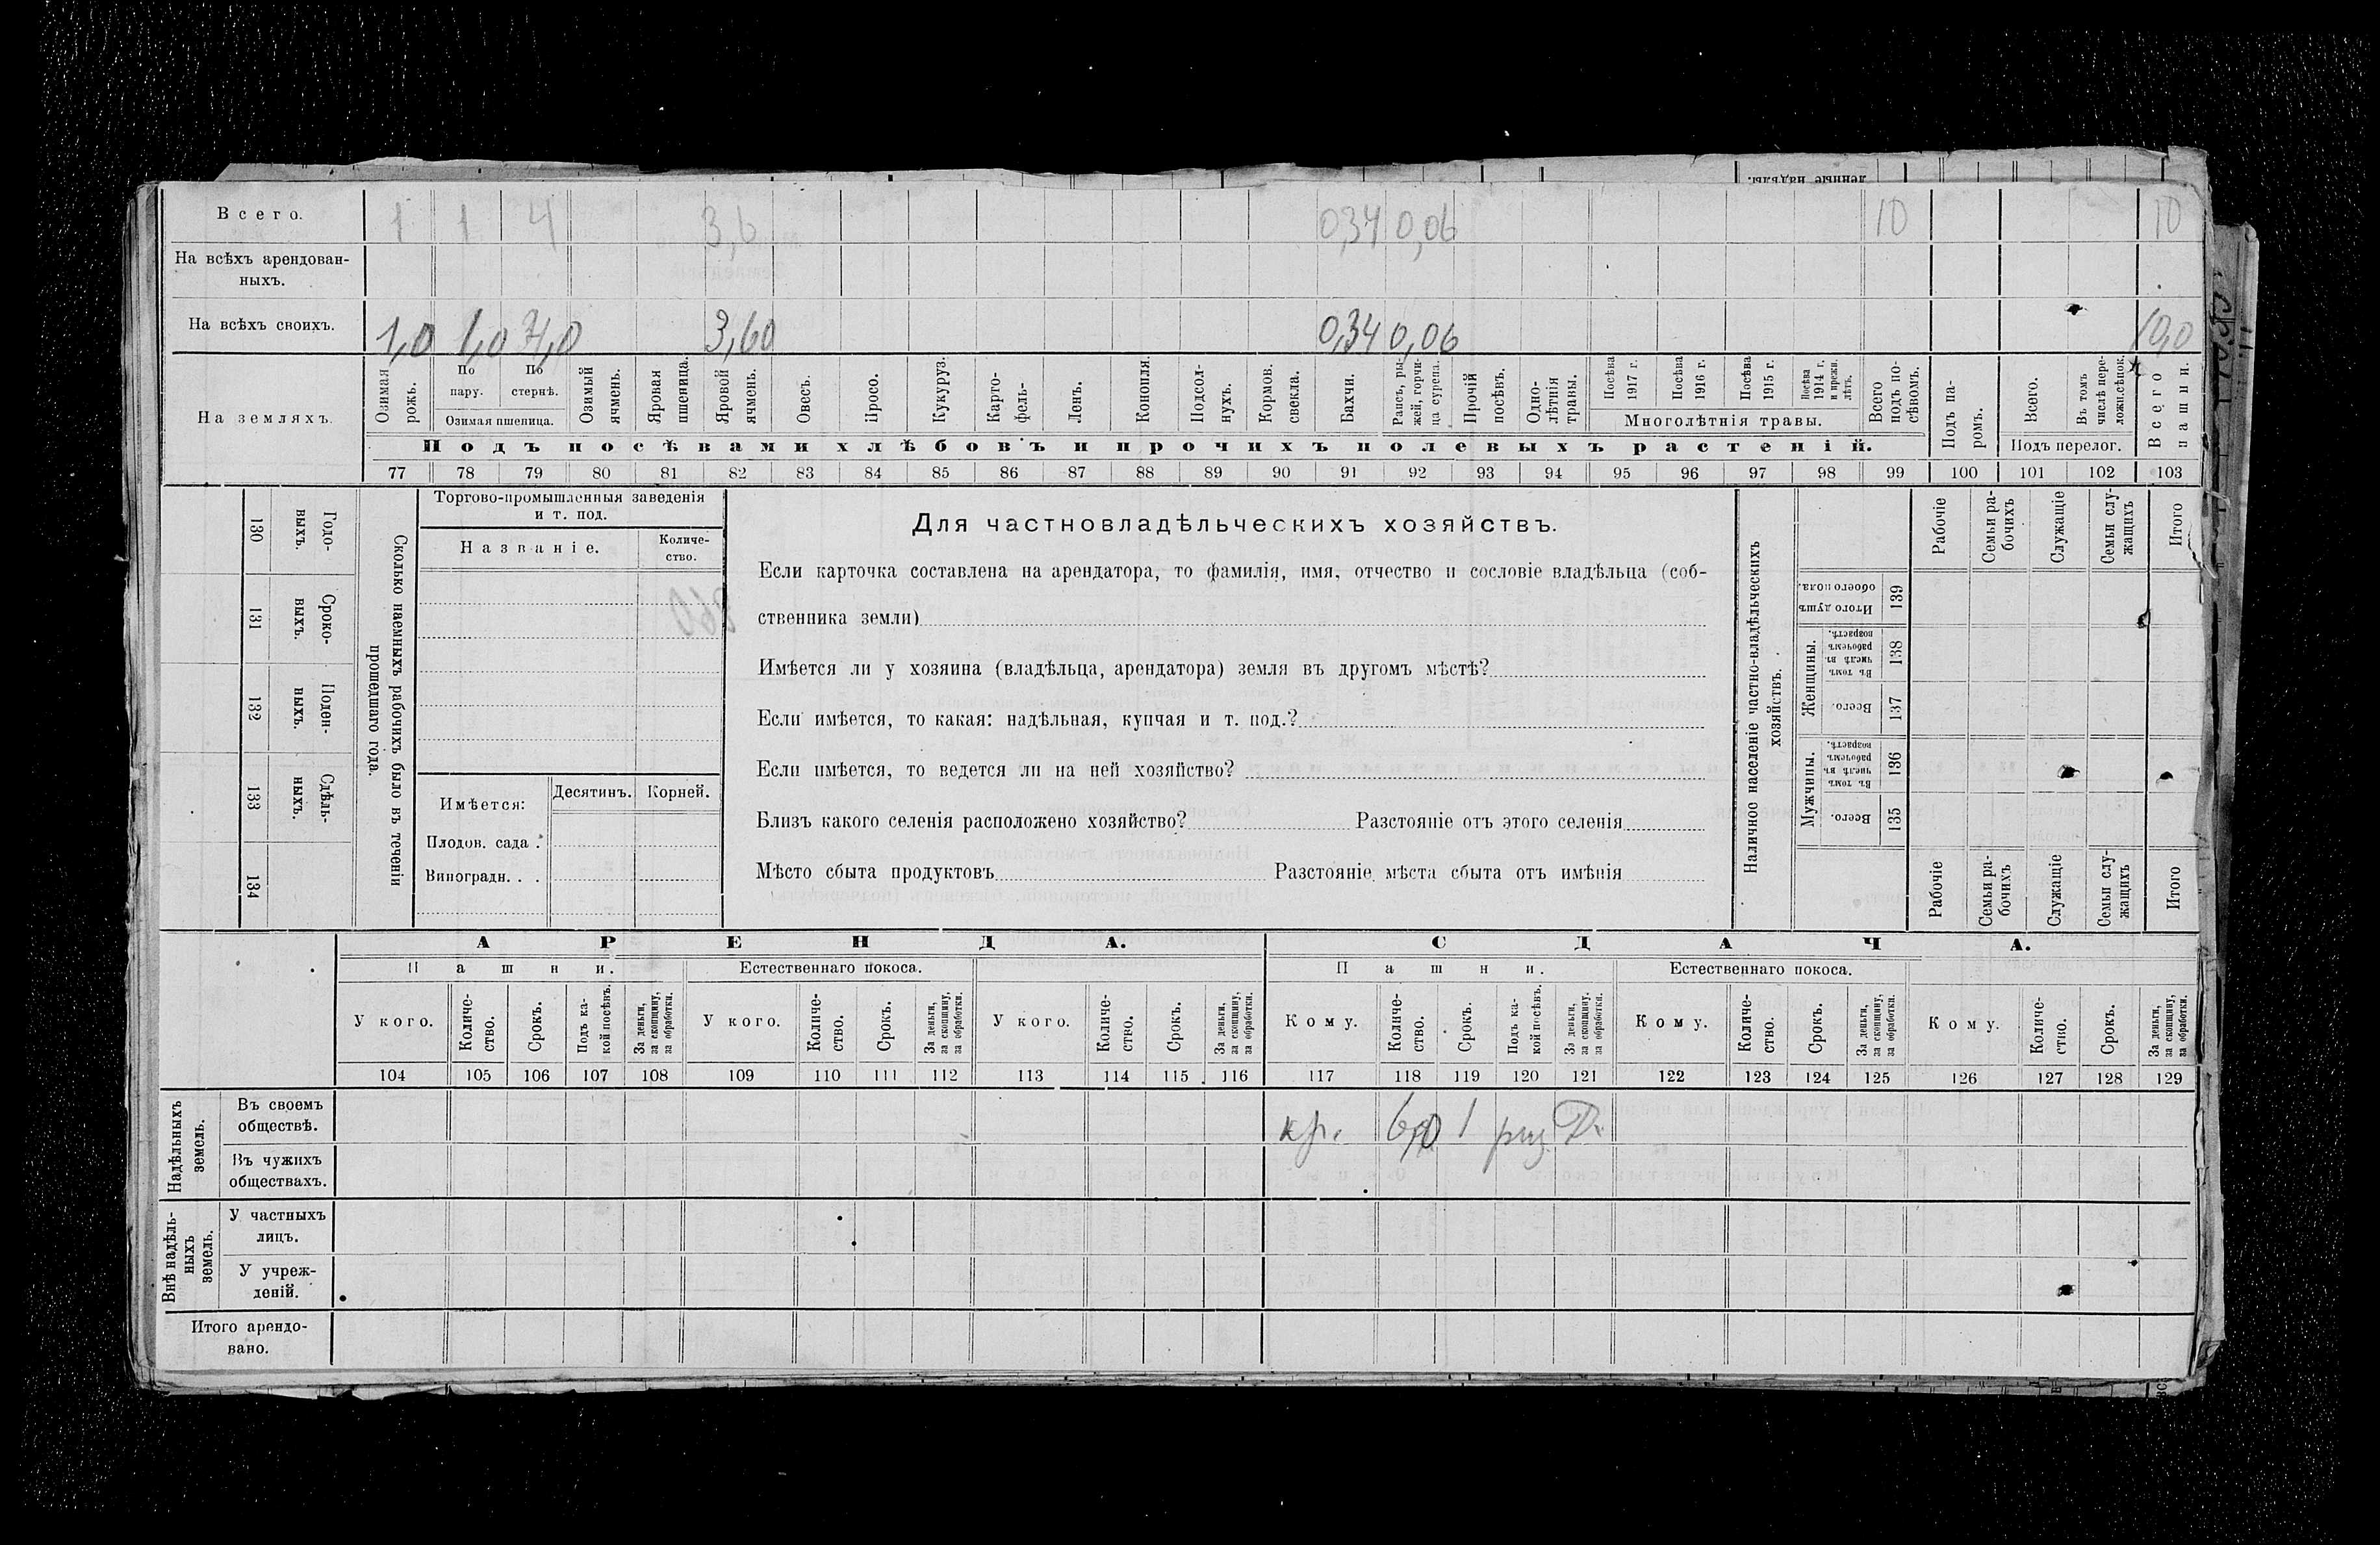 денные надѣлы.
Всего. 1 1 4 3,6 0,34 0,06 10 10
На всѣхъ арендован-
ныхъ.
На всѣхъ своихъ. 1,0 1,0 4,0 3,60 0,34 0,06 10,0
На земляхъ.
Озимая рожь.
По пару.
По стернѣ.
Озимая пшеница.
Озимый ячмень.
Яровая пшеница.
Яровой ячмень.
Овесъ.
Просо.
Кукуруз.
Карто-
фель-
Ленъ.
Конопля.
Подсол-
нухъ.
Кормов. свекла.
Бахчи.
Рапсъ, ры-
жей, горчи-
ца сурепа.
Прочій посѣвъ.
Одно-
лѣтнія
травы.
Посѣва 1917 г.
Посѣва 1916 г.
Посѣва 1915 г.
Посѣва 1914 г. и прежн. лѣтъ.
Многолѣтнія травы.
Всего подъ по-
сѣвомъ.
Подъ па-
ромъ.
Всего.
Въ томъ числѣ пере-
ложн.сѣнок.
Подъ перелог.
Всего пашни.
Подъ посѣвами хлѣбовъ и прочихъ полевыхъ растеній.
77 78 79 80 81 82 83 84 85 86 87 88 89 90 91 92 93 94 95 96 97 98 99 100 101 102 103
130 Годо-
выхъ.
131 Сроко-
выхъ.
132 Поден-
ныхъ.
133 Сдѣль-
ныхъ.
134
Сколько наемныхъ рабочихъ было въ теченіи
прошедшаго года.
Торгово-промышленныя заведенія
и т. под.
Названіе.
Количе-
ство.
Имѣется:
Десятинъ.
Корней.
Плодов. сада .
Виноградн. . .
Для частновладѣльческихъ хозяйствъ.
Если карточка составлена на арендатора, то фамилія, имя, отчество и сословіе владѣльца (соб-
ственника земли)
Имѣется ли у хозяина (владѣльца, арендатора) земля въ другомъ мѣстѣ?
Если имѣется, то какая: надѣльная, купчая и т. под.?
Если имѣется, то ведется ли на ней хозяйство?
Близъ какого селенія расположено хозяйство? Разстояніе отъ этого селенія
Мѣсто сбыта продуктовъ Разстояніе мѣста сбыта отъ имѣнія
Наличное населеніе частно-владѣльческихъ
хозяйствъ.
Рабочіе
Семьи ра-
бочихъ
Служащіе
Семьи слу-
жащихъ
Итого
Итого душъ обоего пола. 139
Женщины.
Въ томъ числѣ въ рабочемъ возрастѣ. 138
Всего. 137
Мужчины.
Въ томъ числѣ въ рабочемъ возрастѣ. 136
Всего. 135
Рабочіе
Семьи ра-
бочихъ
Служащіе
Семьи слу-
жащихъ
Итого
АРЕНДА. СДАЧА.
Пашни. Естественнаго покоса. Пашни. Естественнаго покоса.
У кого.
Количе-
ство.
Срокъ.
Подъ ка-
кой посѣвъ.
За деньги,
за скопщину,
за обработки.
У кого.
Количе-
ство.
Срокъ.
За деньги,
за скопщину,
за обработки.
У кого.
Количе-
ство.
Срокъ.
За деньги,
за скопщину,
за обработки.
Кому.
Количе-
ство.
Срокъ.
Подъ ка-
кой посѣвъ.
За деньги,
за скопщину.
за обработки.
Кому.
Количе-
ство.
Срокъ.
За деньги,
за скопщину,
за обработки.
Кому.
Количе-
ство.
Срокъ.
За деньги,
за скопщину,
за обработки.
104 105 106 107 108 109 110 111 112 113 114 115 116 117 118 119 120 121 122 123 124 125 126 127 128 129
Надѣльныхъ
земель.
Въ своемъ
обществѣ. кр. 6,0 1 Д.
Въ чужихъ
обществахъ.
Внѣ надѣль-
ныхъ
земель.
У частныхъ
лицъ.
У учреж-
деній.
Итого арендо-
вано.